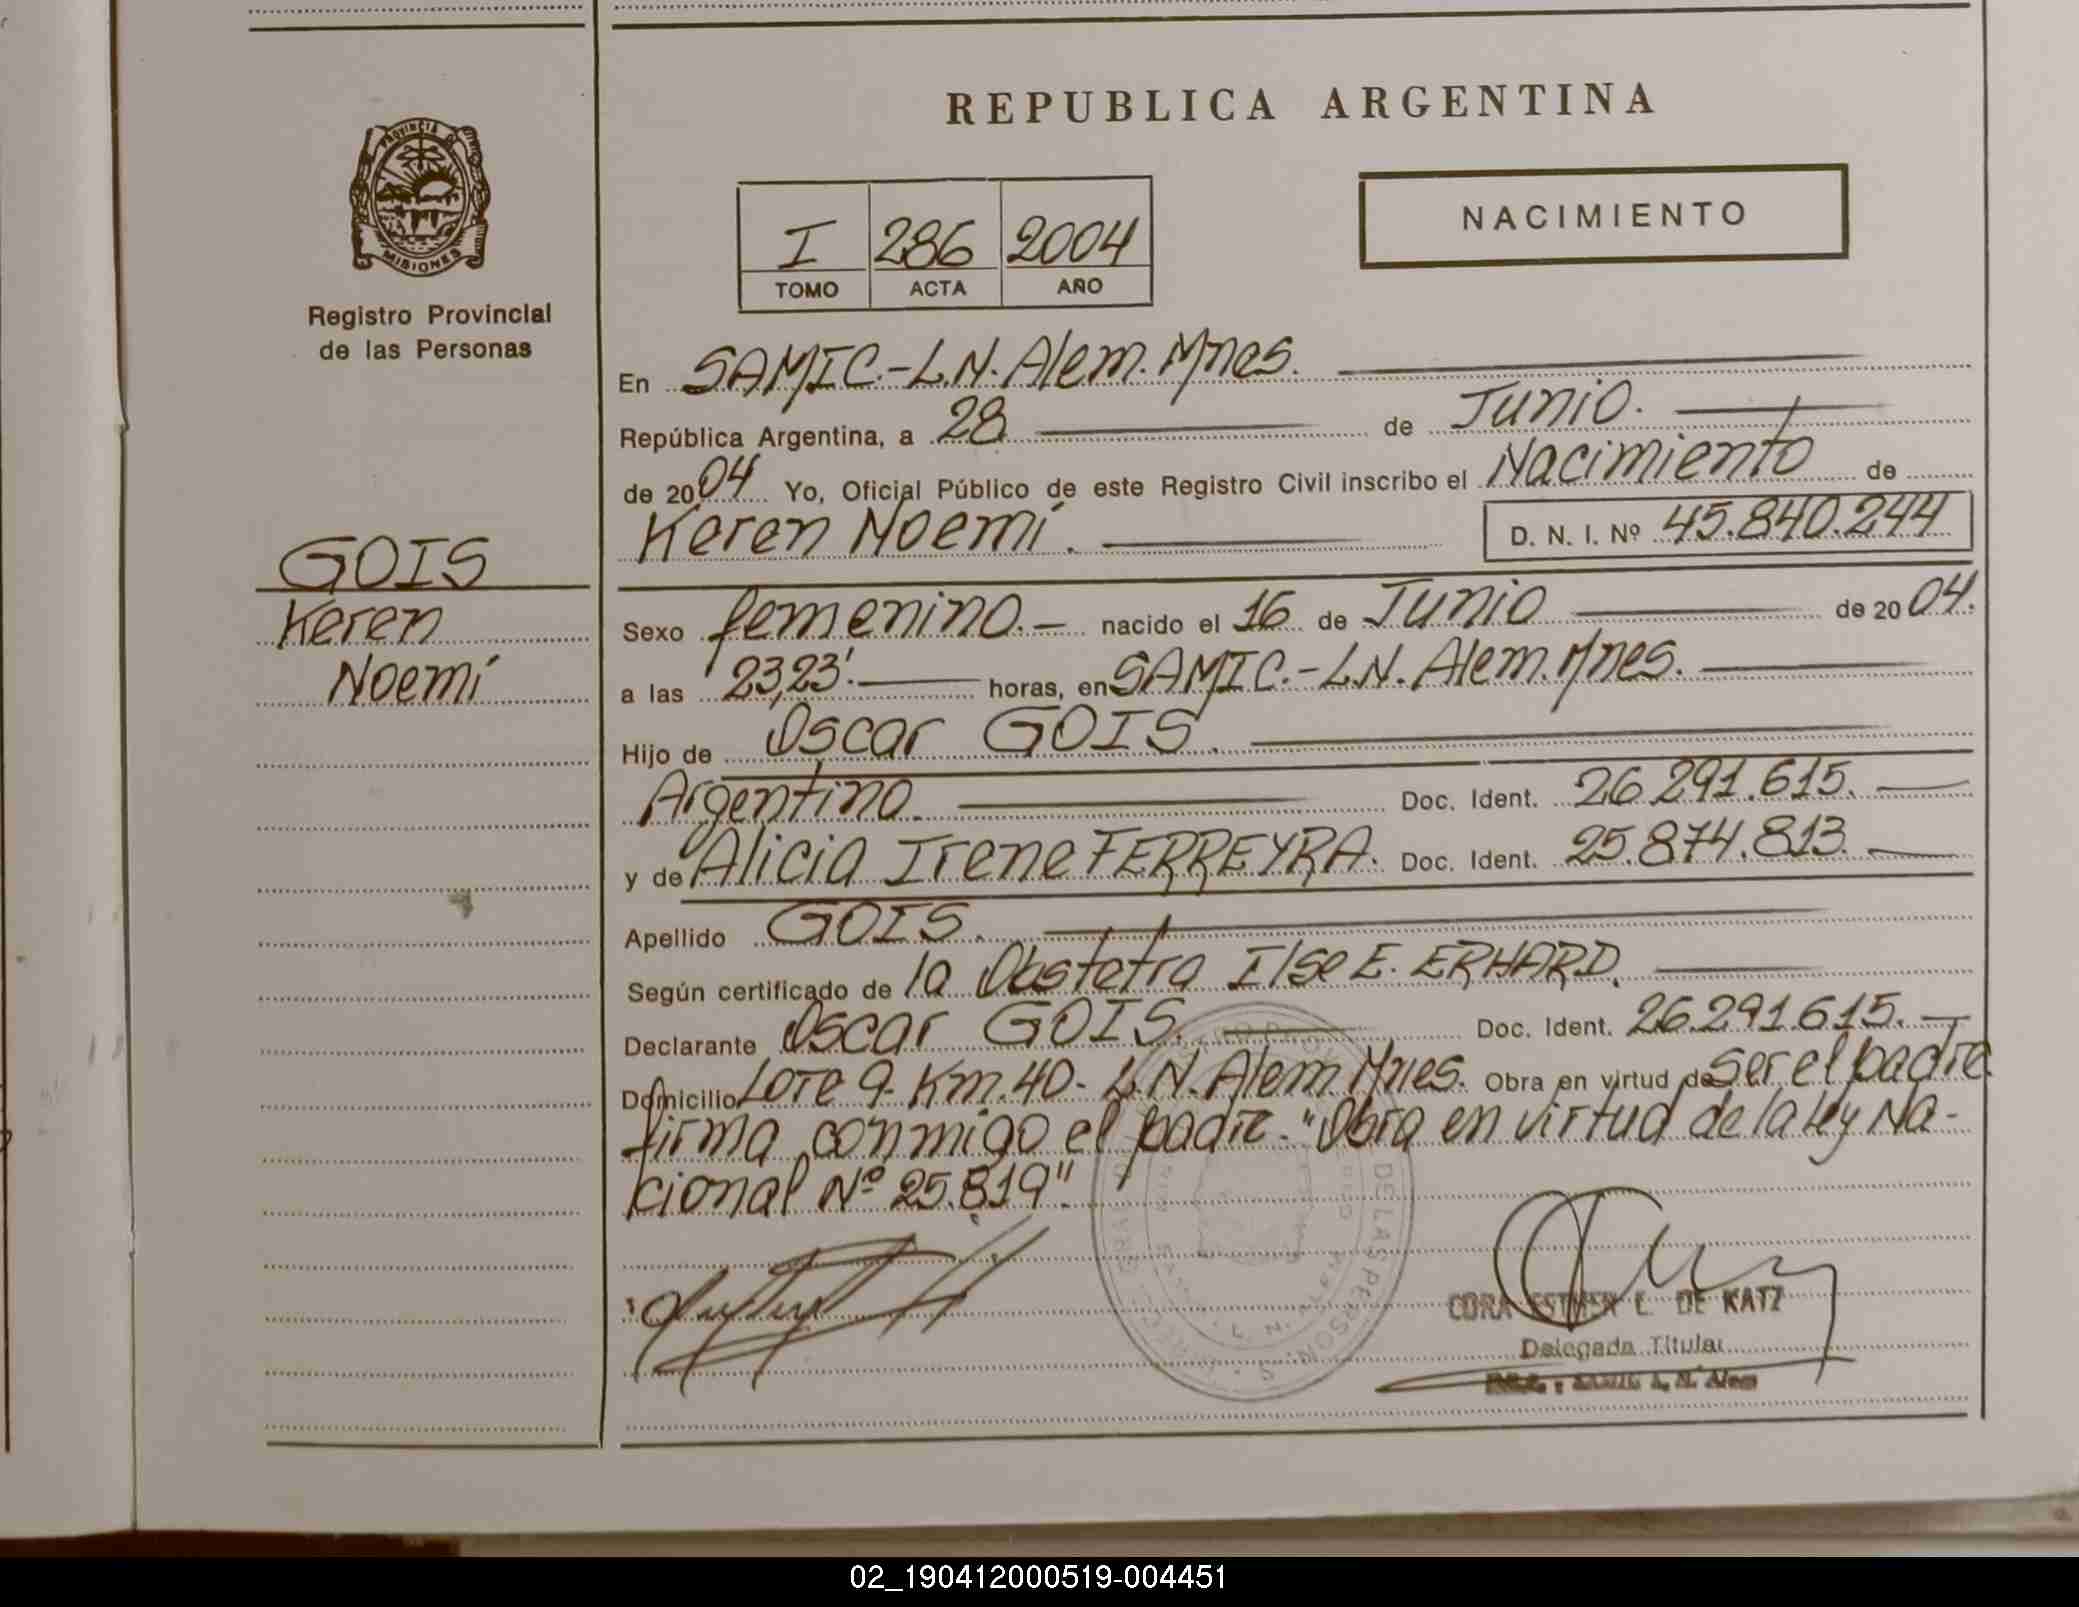 REPUBLICA ARGENTINA
PROVINCIA DE
MISIONES
Registro Provincial
de las Personas
I 286 2004
TOMO ACTA AÑO
NACIMIENTO
En SAMIC.-L.N.Alem.Mnes.
República Argentina, a 28 de Junio.
de 2004 Yo, Oficial Público de este Registro Civil inscribo el Nacimiento de
Keren Noemí. D. N. I. Nº 45.840.244
GOIS
Keren
Noemí
Sexo femenino.- nacido el 16 de Junio de 2004.
a las 23,23'. horas, en SAMIC.-L.N. Alem.Mnes.
Hijo de Oscar GOIS.
Argentino. Doc. Ident. 26.291.615.
y de Alicia Irene FERREYRA. Doc. Ident. 25.874.813.
Apellido GOIS.
Según certificado de la Obstetra Ilse E. ERHARD.
Declarante Oscar GOIS. Doc. Ident. 26.291.615.-
Domicilio Lote 9- Km.40- L.N.Alem Mnes. Obra en virtud de ser el padre
firma conmigo el padre-"Obra en virtud de la ley Na-
cional Nº 25.819".
DE LAS PERSONAS
CORA ESTHER L. DE KATZ
Delegada Titular
L. N. Alem
02_190412000519-004451